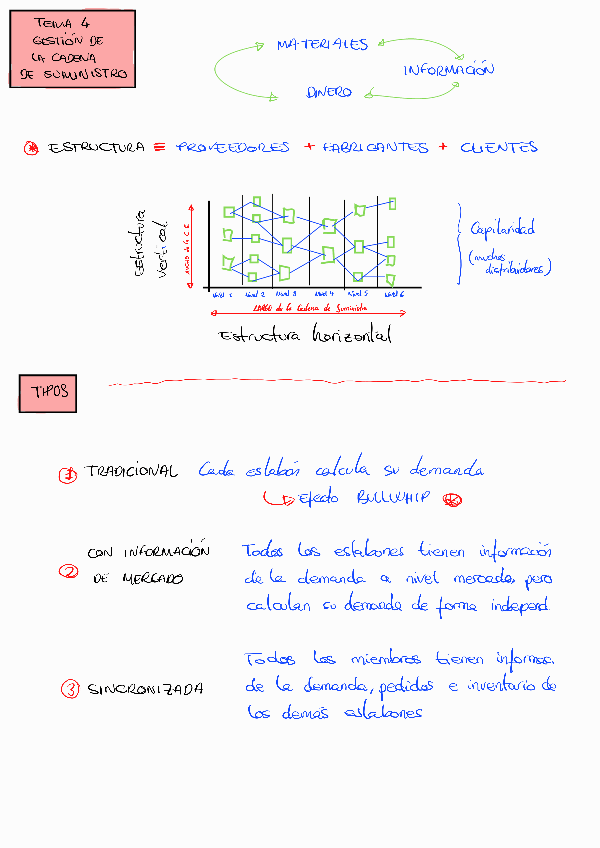 TEMA 4
GESTIÓN DE
LA CADENA
DE SUMINISTRO
MATERIALES
INFORMACIÓN
DINERO
* ESTRUCTURA ≡ PROVEEDORES + FABRICANTES + CLIENTES
Estructura
vertical
ANCHO de la C.S.
Capilaridad
(muchos
distribuidores)
Nivel 1 Nivel 2 Nivel 3 Nivel 4 Nivel 5 Nivel 6
LARGO de la Cadena de Suministro
Estructura horizontal
TIPOS
1 TRADICIONAL Cada eslabón calcula su demanda
↳ Efecto BULLWHIP *
CON INFORMACIÓN Todos los eslabones tienen información
2 DE MERCADO de la demanda a nivel mercado, pero
calculan su demanda de forma independ.
Todos los miembros tienen informac.
3 SINCRONIZADA de la demanda, pedidos e inventario de
los demás eslabones